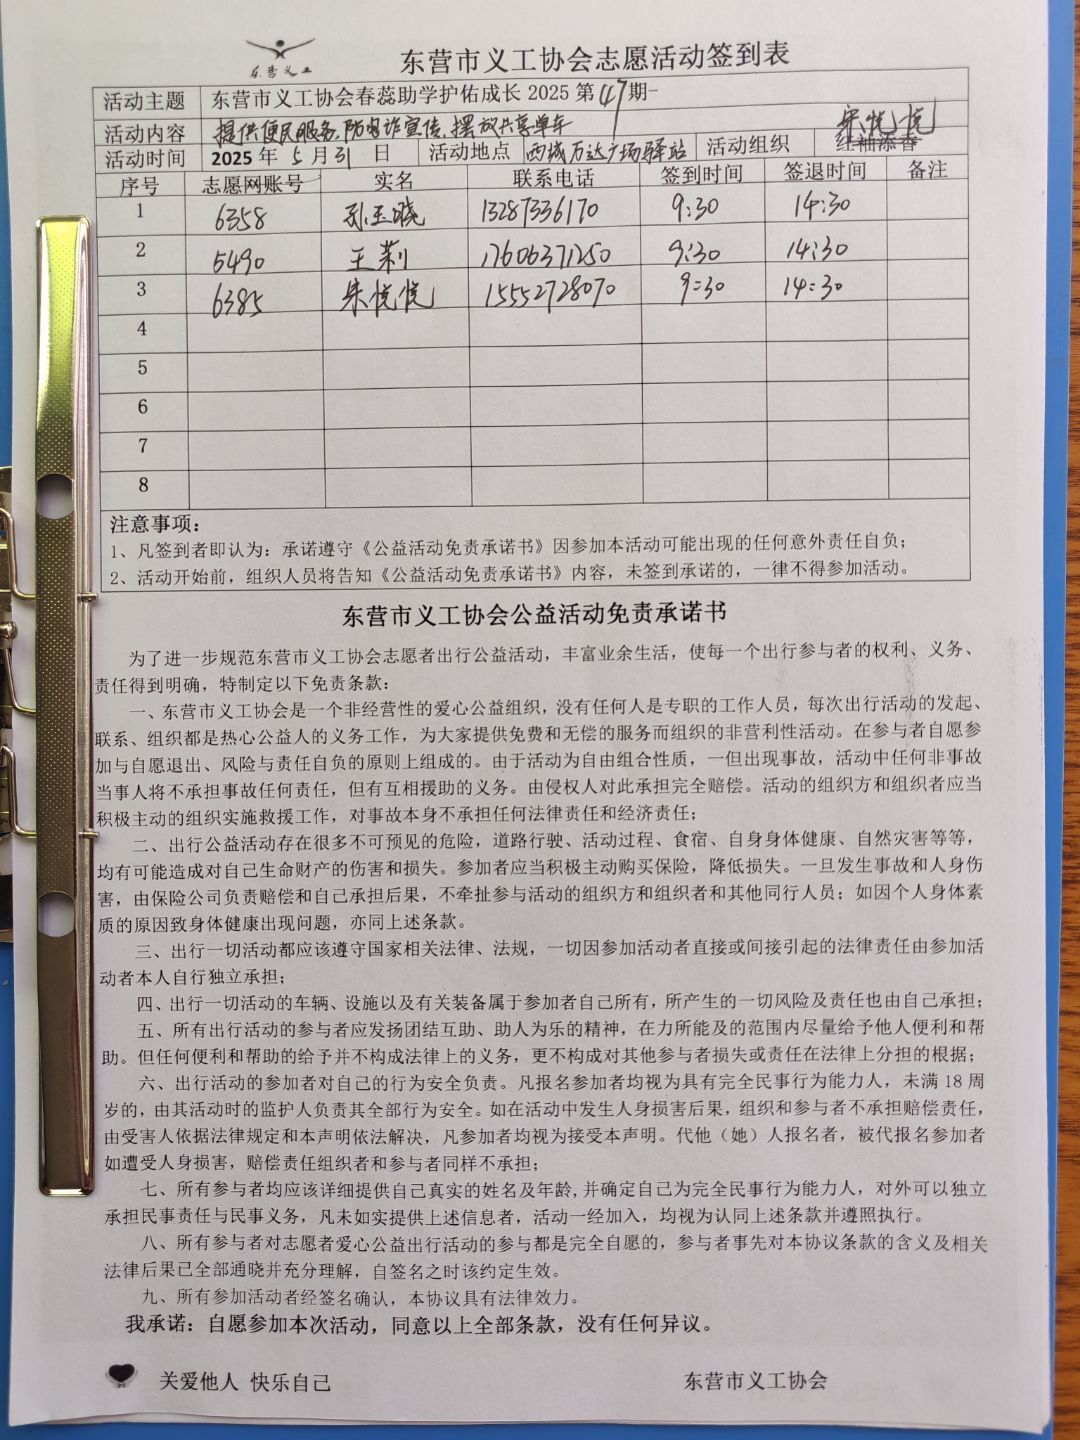 东营义工
东营市义工协会志愿活动签到表
活动主题 东营市义工协会春蕊助学护佑成长 2025 第 47 期-
活动内容 提供便民服务.防电诈宣传.摆放共享单车
活动时间 2025 年 5 月 31 日 活动地点 西城万达广场驿站 活动组织 红袖添香 宋悦悦
序号 志愿网账号 实名 联系电话 签到时间 签退时间 备注
1 6358 孙玉晓 13287336170 9:30 14:30
2 5490 王莉 17606371250 9:30 14:30
3 6385 朱悦悦 15552728070 9:30 14:30
4
5
6
7
8
注意事项：
1、凡签到者即认为：承诺遵守《公益活动免责承诺书》因参加本活动可能出现的任何意外责任自负；
2、活动开始前，组织人员将告知《公益活动免责承诺书》内容，未签到承诺的，一律不得参加活动。
东营市义工协会公益活动免责承诺书
为了进一步规范东营市义工协会志愿者出行公益活动，丰富业余生活，使每一个出行参与者的权利、义务、
责任得到明确，特制定以下免责条款：
一、东营市义工协会是一个非经营性的爱心公益组织，没有任何人是专职的工作人员，每次出行活动的发起、
联系、组织都是热心公益人的义务工作，为大家提供免费和无偿的服务而组织的非营利性活动。在参与者自愿参
加与自愿退出、风险与责任自负的原则上组成的。由于活动为自由组合性质，一但出现事故，活动中任何非事故
当事人将不承担事故任何责任，但有互相援助的义务。由侵权人对此承担完全赔偿。活动的组织方和组织者应当
积极主动的组织实施救援工作，对事故本身不承担任何法律责任和经济责任；
二、出行公益活动存在很多不可预见的危险，道路行驶、活动过程、食宿、自身身体健康、自然灾害等等，
均有可能造成对自己生命财产的伤害和损失。参加者应当积极主动购买保险，降低损失。一旦发生事故和人身伤
害，由保险公司负责赔偿和自己承担后果，不牵扯参与活动的组织方和组织者和其他同行人员；如因个人身体素
质的原因致身体健康出现问题，亦同上述条款。
三、出行一切活动都应该遵守国家相关法律、法规，一切因参加活动者直接或间接引起的法律责任由参加活
动者本人自行独立承担；
四、出行一切活动的车辆、设施以及有关装备属于参加者自己所有，所产生的一切风险及责任也由自己承担；
五、所有出行活动的参与者应发扬团结互助、助人为乐的精神，在力所能及的范围内尽量给予他人便利和帮
助。但任何便利和帮助的给予并不构成法律上的义务，更不构成对其他参与者损失或责任在法律上分担的根据；
六、出行活动的参加者对自己的行为安全负责。凡报名参加者均视为具有完全民事行为能力人，未满 18 周
岁的，由其活动时的监护人负责其全部行为安全。如在活动中发生人身损害后果，组织和参与者不承担赔偿责任，
由受害人依据法律规定和本声明依法解决，凡参加者均视为接受本声明。代他（她）人报名者，被代报名参加者
如遭受人身损害，赔偿责任组织者和参与者同样不承担；
七、所有参与者均应该详细提供自己真实的姓名及年龄,并确定自己为完全民事行为能力人，对外可以独立
承担民事责任与民事义务，凡未如实提供上述信息者，活动一经加入，均视为认同上述条款并遵照执行。
八、所有参与者对志愿者爱心公益出行活动的参与都是完全自愿的，参与者事先对本协议条款的含义及相关
法律后果已全部通晓并充分理解，自签名之时该约定生效。
九、所有参加活动者经签名确认，本协议具有法律效力。
我承诺：自愿参加本次活动，同意以上全部条款，没有任何异议。
关爱他人 快乐自己 东营市义工协会